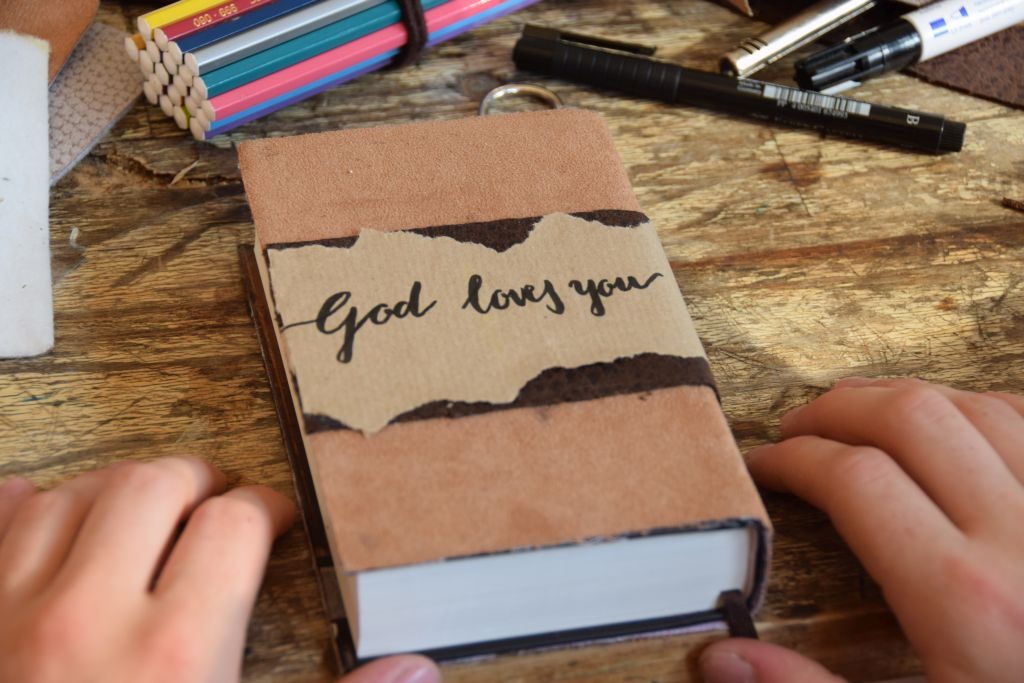 God loves you
B